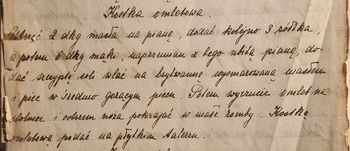 Kostka omletowa.
Ubić 2 dkg masła na pianę, dodać kolejno 3 żółtka,
a potem 6 dkg mąki, naprzemian z tego ubitą pianą, do-
dać szczyptę soli wlać na brytwannę wysmarowaną masłem
i piec w średnio gorącym piecu. Potem wyrzucić omlet na
stolnicę i ostrzem noża pokrajać w małe romby. Kostkę
omletową podać na płytkim talerzu.